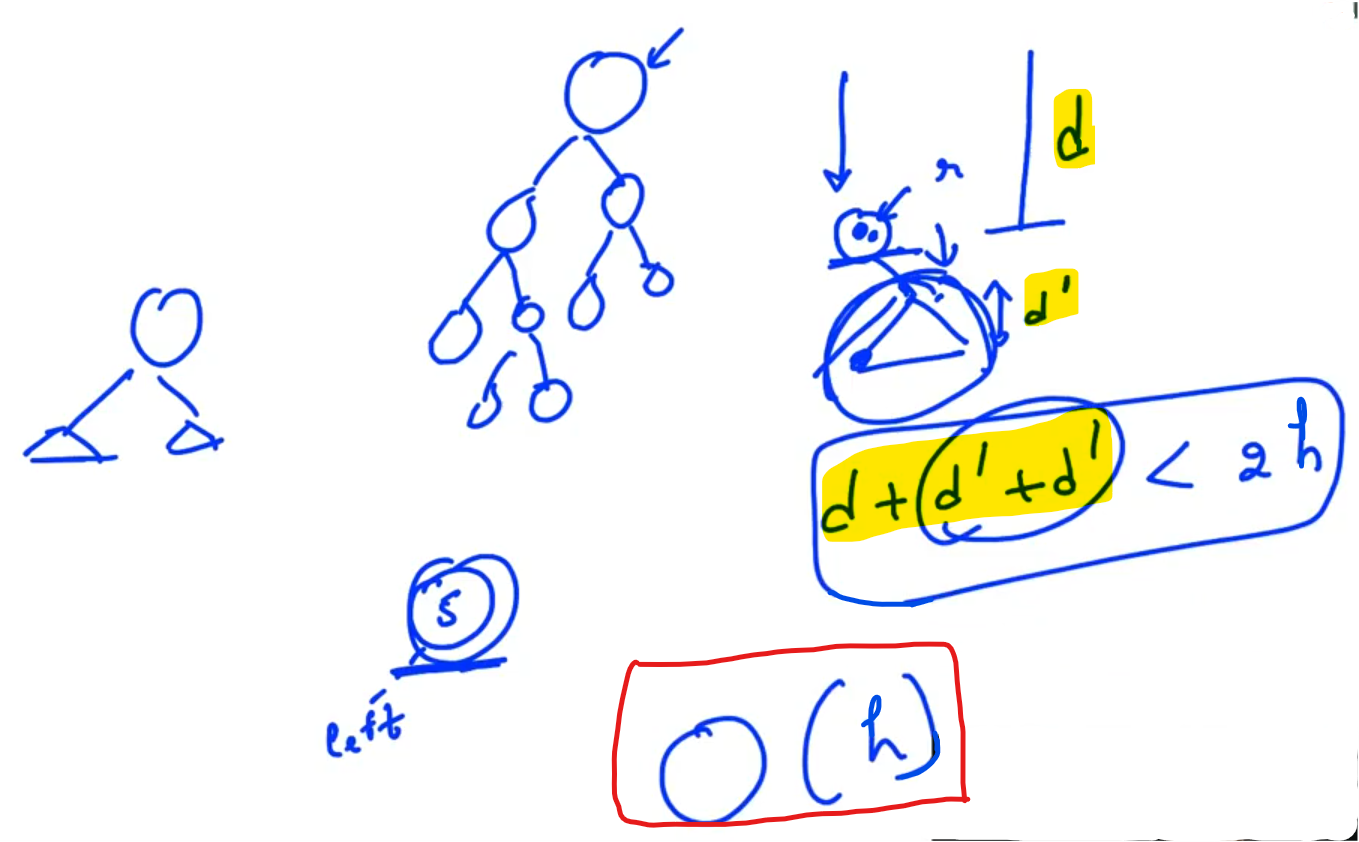 d
r
d'
d + d' + d' < 2h
5
left
O(h)